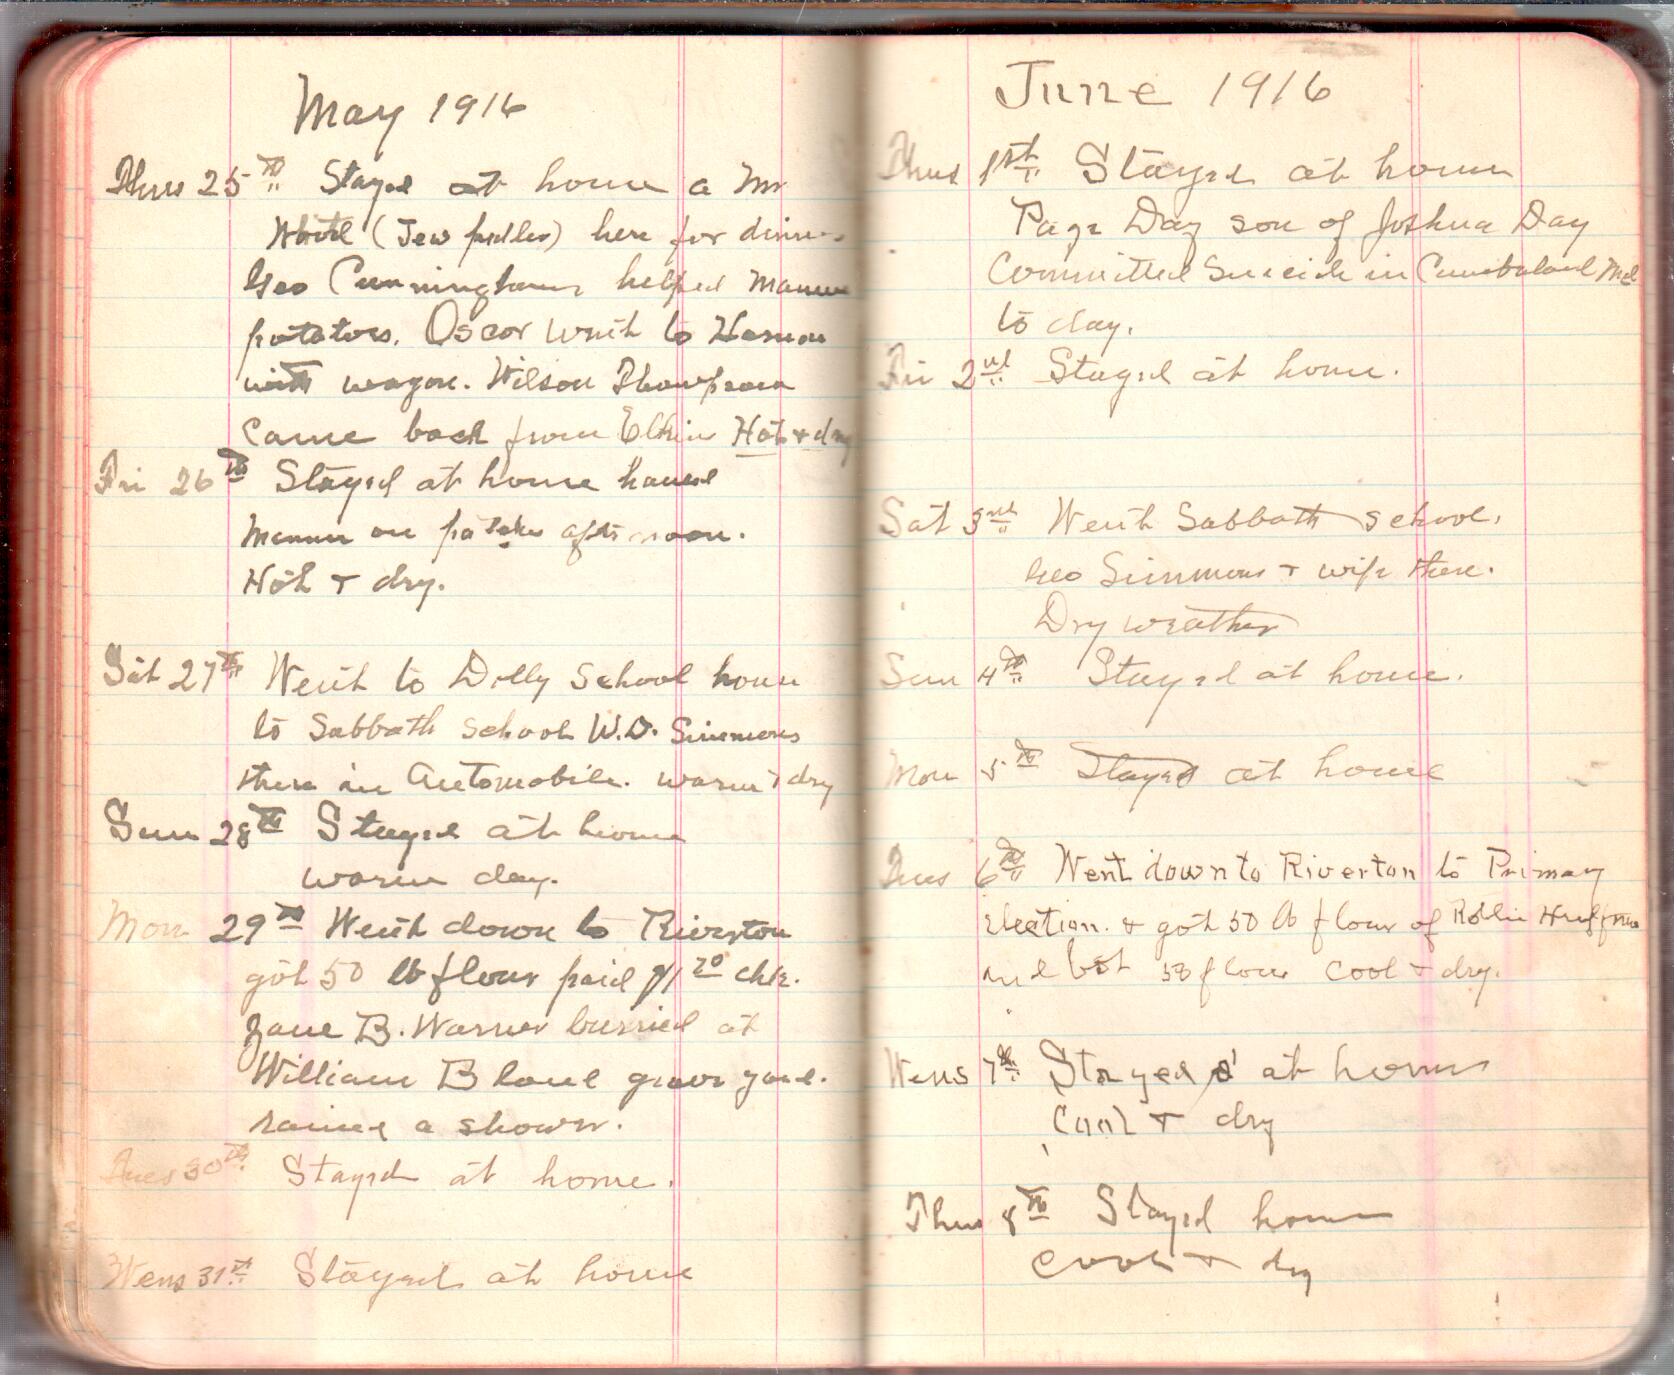 May 1916
Thus 25th Stayed at home a Mr
White (Jew pedler) here for dinner
Geo Cunningham helped manure
potatoes. Oscar went to Harman
with wagon. Wilson Thompson
Came back from Elkins Hot & dry
Fri 26th Stayed at home hauled
manure on potatoes afternoon.
Hot & dry.
Sat 27th Went to Dolly School house
to Sabbath school W.D. Simmons
there in Automobile. warm & dry
Sun 28th Stayed at home
warm day.
Mon 29th Went down to Riverton
got 50 lb flour paid $1 20 chk.
Jane B. Warner burried at
William Bland grave yard.
rained a shower.
Tues 30th Stayed at home.
Wens 31st Stayed at home
June 1916
Thus 1st Stayed at home
Page Day son of Joshua Day
Committed Suicide in Cumberland Md
to day.
Fri 2nd Stayed at home.
Sat 3rd Went Sabbath school.
Geo Simmons & wife there.
Dry weather
Sun 4th Stayed at home.
Mon 5th Stayed at home
Tues 6th Went down to Riverton to Primary
election. & got 50 lb flour of Robbie Huffman
50 flour cool & dry.
Wens 7th Stayed at home
Cool & dry
Thus 8th Stayed home
cool & dry